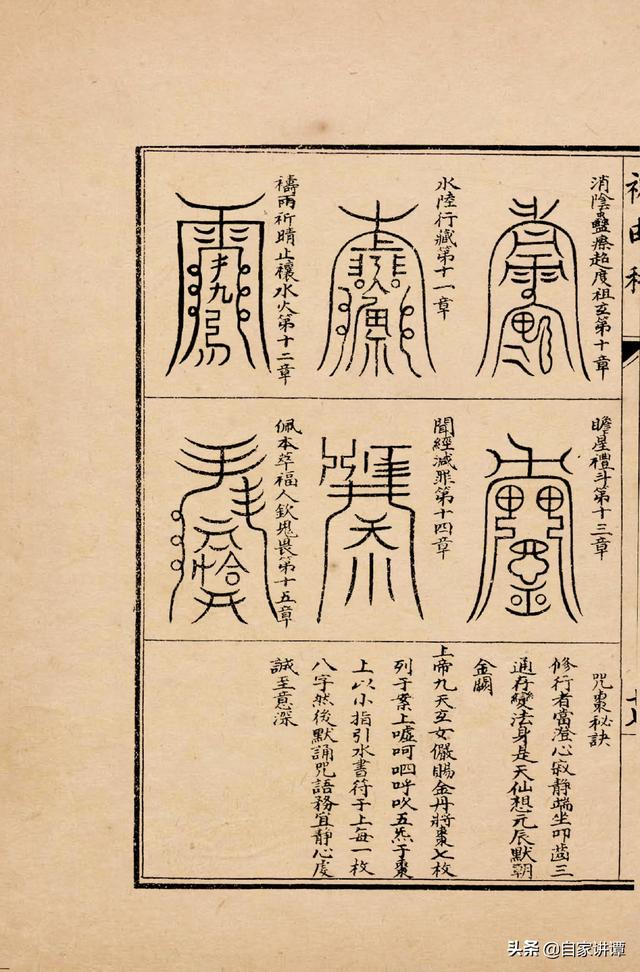 消陰蠱療超度祖玄第十章
水陸行藏第十一章
禱雨祈晴止禳水火第十二章
瞻星禮斗第十三章
聞經滅罪第十四章
佩本萃福人欽鬼畏第十五章
咒棗秘訣
修行者當澄心寂靜端坐叩齒三
通存變法身是天仙想元辰默朝
金闕
上帝九天玄女儼賜金丹將棗七枚
列于案上噓呵呬呼吹五炁于棗
上以小指引水書符于上每一枚
八字然後默誦咒語務宜靜心虔
誠至意深
头条 @自家讲谭